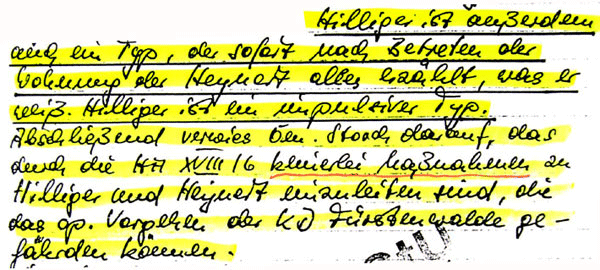 Hilliger ist außerdem
auch ein Typ, der sofort nach Betreten der
Wohnung der Heynert alles erzählt, was er
weiß. Hilliger ist ein impulsiver Typ.
Abschließend verwies Gen. Storch darauf, das
durch die HA XVIII/6 keinerlei Maßnahmen zu
Hilliger und Heynert einzuleiten sind, die
das op. Vorgehen der KD Fürstenwalde ge-
fährden können.